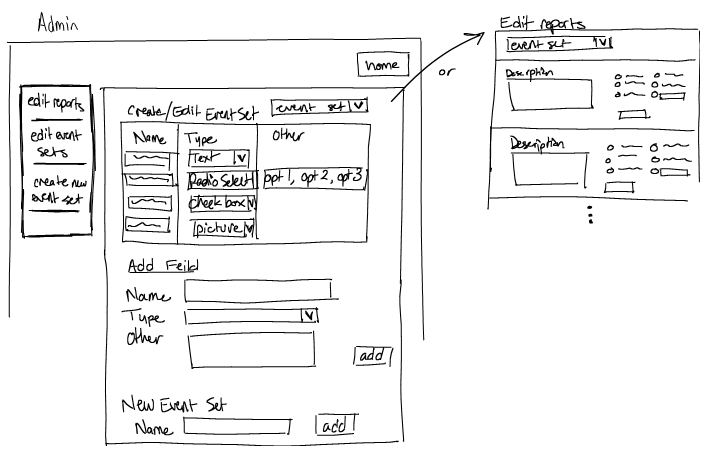 Admin
home
edit reports
edit event
sets
create new
event set
Create/Edit EventSet
event set
Name Type Other
Text
Radio Select opt 1, opt 2, opt 3
check box
picture
Add Feild
Name
Type
Other
add
New Event Set
Name
add
or
Edit reports
event set
Description
Description